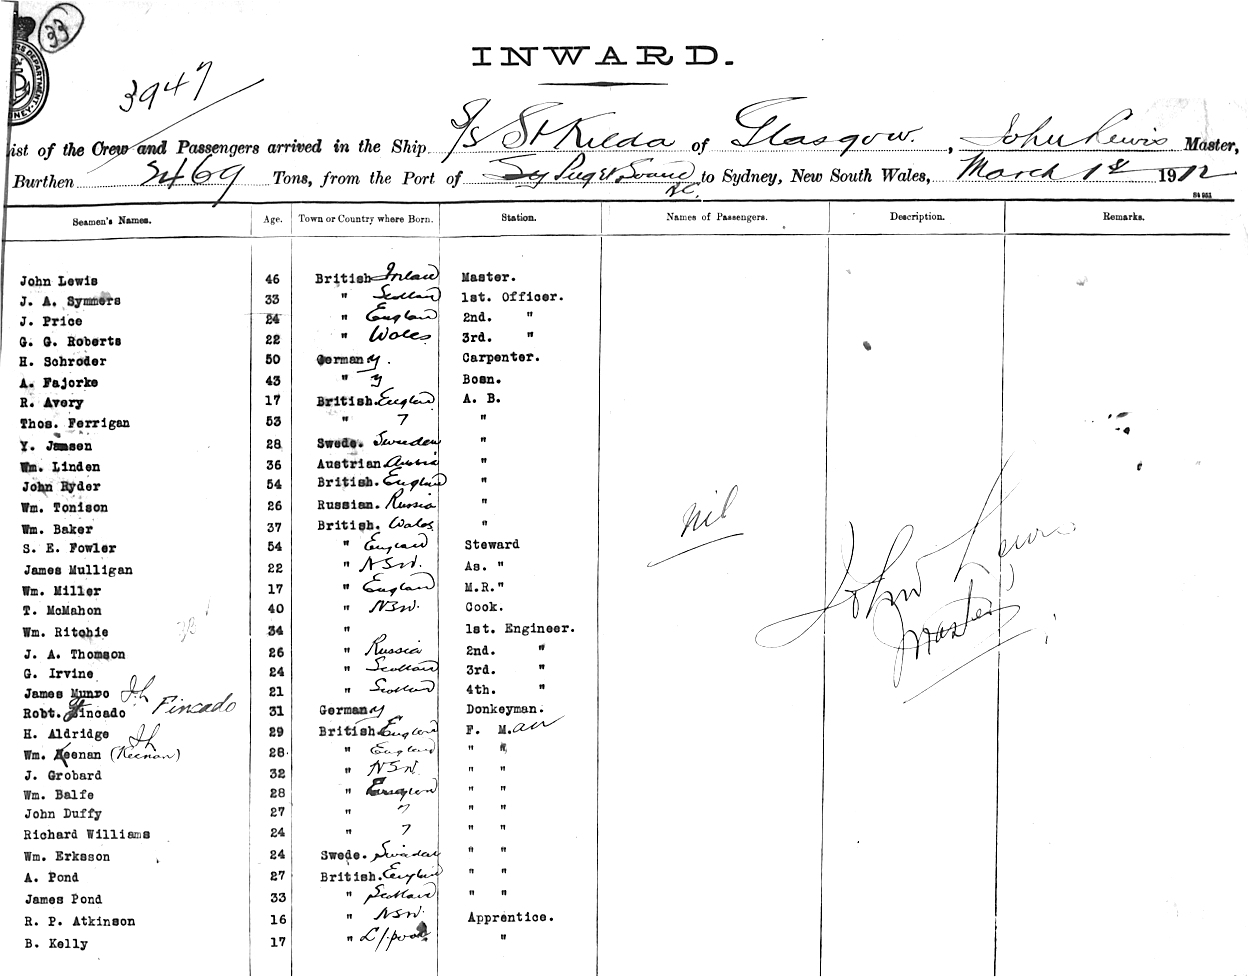 33
INWARD.
3947
ist of the Crew and Passengers arrived in the Ship S/S St Kilda of Glasgow. , John Lewis Master,
Burthen 3469 Tons, from the Port of Puget Sound to Sydney, New South Wales, March 1st 1912
Seamen's Names. Age. Town or Country where Born. Station. Names of Passengers. Description. Remarks.
John Lewis 46 British Master.
J. A. Symmers 33 " Scotland 1st. Officer.
J. Price 24 " England 2nd. "
G. G. Roberts 22 " Wales 3rd. "
H. Schroder 50 Germany. Carpenter.
A. Fajorke 43 " y Bosn.
R. Avery 17 British. England A. B.
Thos. Ferrigan 53 " "
Y. Jansen 28 Swede. Sweden "
Wm. Linden 36 Austrian Austria "
John Ryder 54 British. England "
Wm. Tonison 26 Russian. Russia "
Wm. Baker 37 British. Wales "
S. E. Fowler 54 " England Steward
James Mulligan 22 " NSW. As. "
Wm. Miller 17 " England M.R."
T. McMahon 40 " NSW. Cook.
Wm. Ritchie 34 " 1st. Engineer.
J. A. Thomson 26 " Russia 2nd. "
G. Irvine 24 " Scotland 3rd. "
James Munro 21 " Scotland 4th. "
Robt. Fincado Fincado 31 Germany Donkeyman.
H. Aldridge 29 British England F. Man
Wm. Keenan (Keenan) 28. " England " "
J. Grobard 32 " NSW " "
Wm. Balfe 28 " England " "
John Duffy 27 " " "
Richard Williams 24 " " "
Wm. Erksson 24 Swede. Sweden " "
A. Pond 27 British. England " "
James Pond 33 " Scotland " "
R. P. Atkinson 16 " NSW. Apprentice.
B. Kelly 17 " L/pool "
nil
John Lewis
Master